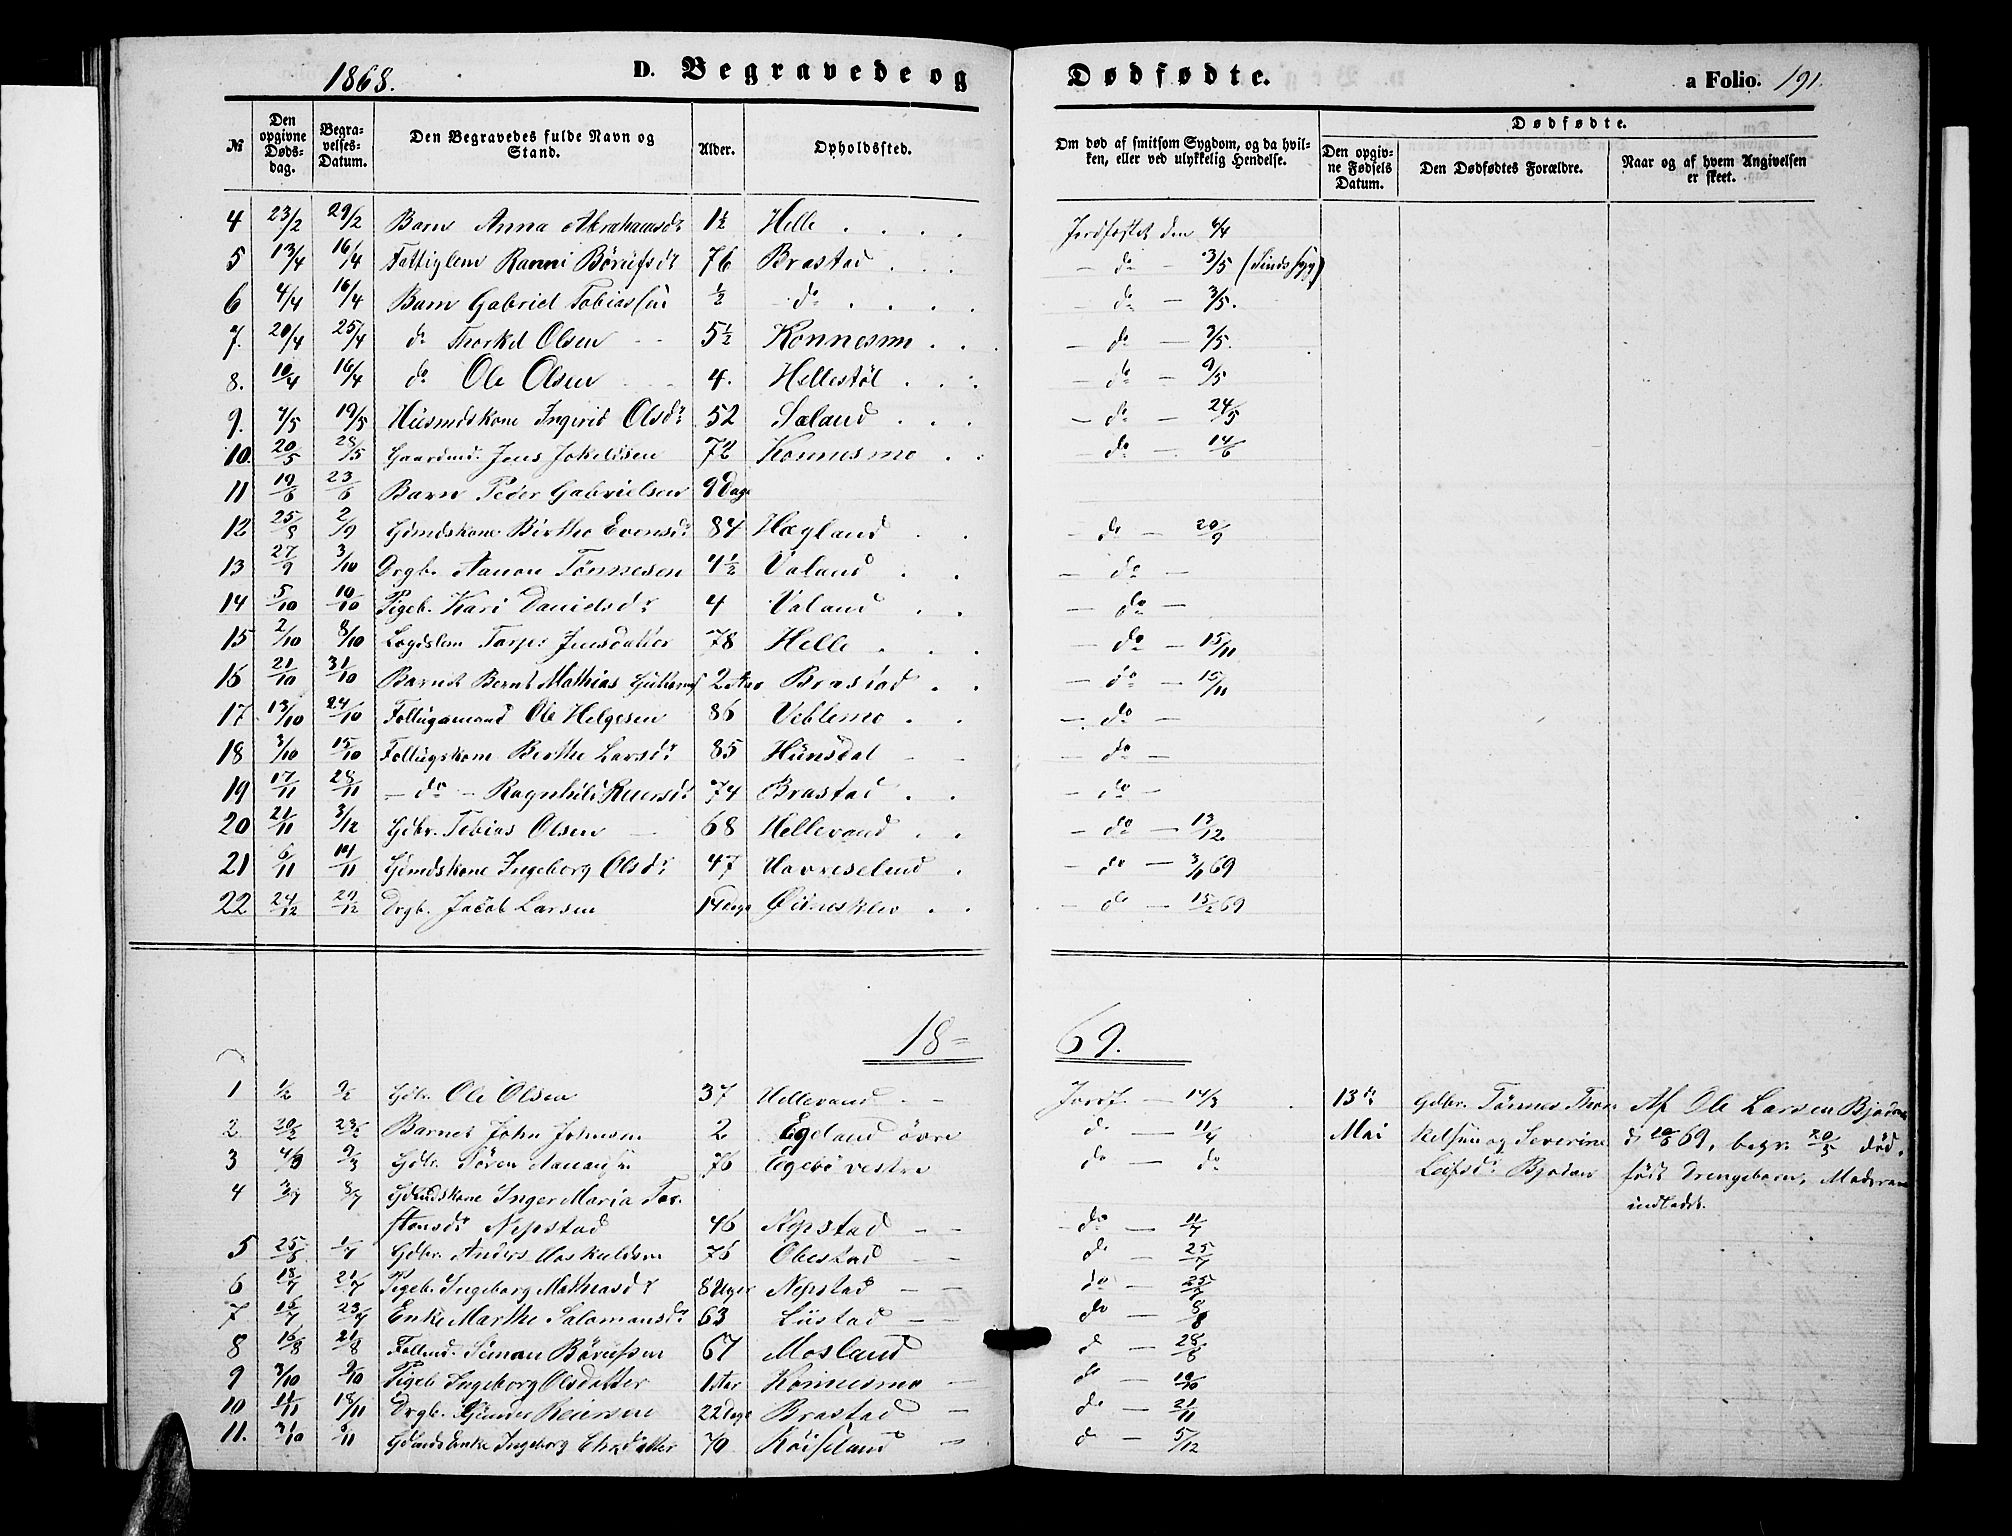 1868. D. Begravede og Dødfødte. a Folio. 191.
№ Den opgivne Dødsdag. Begravelses-Datum. Den Begravedes fulde Navn og Stand. Alder. Opholdssted. Om død af smitsom Sygdom, og da hvilken, eller ved ulykkelig Hendelse. Dødfødte.
Den opgivne Fødsels Datum. Den Dødfødtes Forældre. Naar og af hvem Angivelsen er skeet.
4 23/2 29/2 Barn Anna Abrahamsdr 1½ Helle Jordfæstet den 4/4
5 13/4 16/4 Fattiglem Ranni Børufsdr 76 Brastad - do - 3/5 (Sindssyg)
6 4/4 16/4 Barn Gabriel Tobiassen ½ - do - do - 3/5.
7. 20/4 25/4 do Thorkel Olsen 5½ Konnesmo - do - 3/5.
8. 10/4 16/4 do Ole Olsen 4. Hellestøl - do - 9/5
9. 7/5 19/5 Husmdskone Ingerid Olsdr 52 Søland - do - 24/5
10. 20/5 28/5 Gaardmd. Jens Jokeldsen 72 Konnesmo - do - 14/6
11 19/6 23/6 Barn Peder Gabrielsen 9 Dage
12 25/8 2/9 Gdmdskone Birthe Evensdr 84 Hægland - do - 20/9
13 27/9 3/10 Drgb. Aanon Tønnesen 4½ Valand - do -
14 5/10 10/10 Pigeb. Kari Danielsdr 4 Valand - do -
15 2/10 8/10 Lægdslem Tarjer Jensdatter 78 Helle - do - 15/11
16 21/10 31/10 Barnet Bernt Mathias 2 Aar Brastad - do - 15/11
17 13/10 24/10 Follugamand Ole Helgesen 86 Veblemo - do -
18 3/10 15/10 Follugskone Berthe Larsdr 85 Hunsdal - do -
19 17/11 28/11 - do - Ragnhild Reiersdr 74 Brastad - do -
20 21/11 3/12 Gdbr. Tobias Olsen 68 Hellevand - do - 13/12
21 6/11 14/11 Gdmdskone Ingeborg Olsdr 47 Uovreselund - do - 3/1 69
22 24/12 29/12 Drgb. Jacob Larsen 1 Øinesklev - do - 15/2 69
18-69.
1 ½ 9/2 Gdbr. Ole Olsen 37 Hellevand Jordf. - 14/3 13de Gdbr. Tønnes Thor- Af Ole Larsen Bjodna
2 20/2 23/2 Barnet John Johnsen 2 Egeland øvre do - 11/4 Mai kelsen og Severine d. 69, begr. 20/5 død-
3 4/3 9/3 Gdbr. Søren Aanonsen 76 Egebø vestre do - do Leifsdr Bjodnes født Drengebarn, Moderen
4 3/7 8/7 Gdmdskone Inger Maria Tor- indladt.
stensdr Nepstad 46 Nepstad - do - 11/7
5 25/6 1/7 Gdbr. Anders Aaskuldsen 76 Obestad do - 25/7
6 18/7 21/7 Pigeb. Ingeborg Mathiasdr 8 Uger Nepstad do - 25/7
7 16/7 23/7 Enke Marthe Salomonsdr 63 Liistad do - 8/8
8 16/8 21/8 Follmd. Simon Børufsen 67 Mosland d - 28/8
9 3/10 9/10 Pigeb Ingeborg Olsdatter 1 Aar Konnesmo do - 10/10
10 11/11 18/11 Drgb. Gunder Reiersen 22 Dage Brastad do - 21/11
11. 31/10 5/11 Gdmds Enke Ingeborg Chrdatter 70 Røiseland d - 5/12